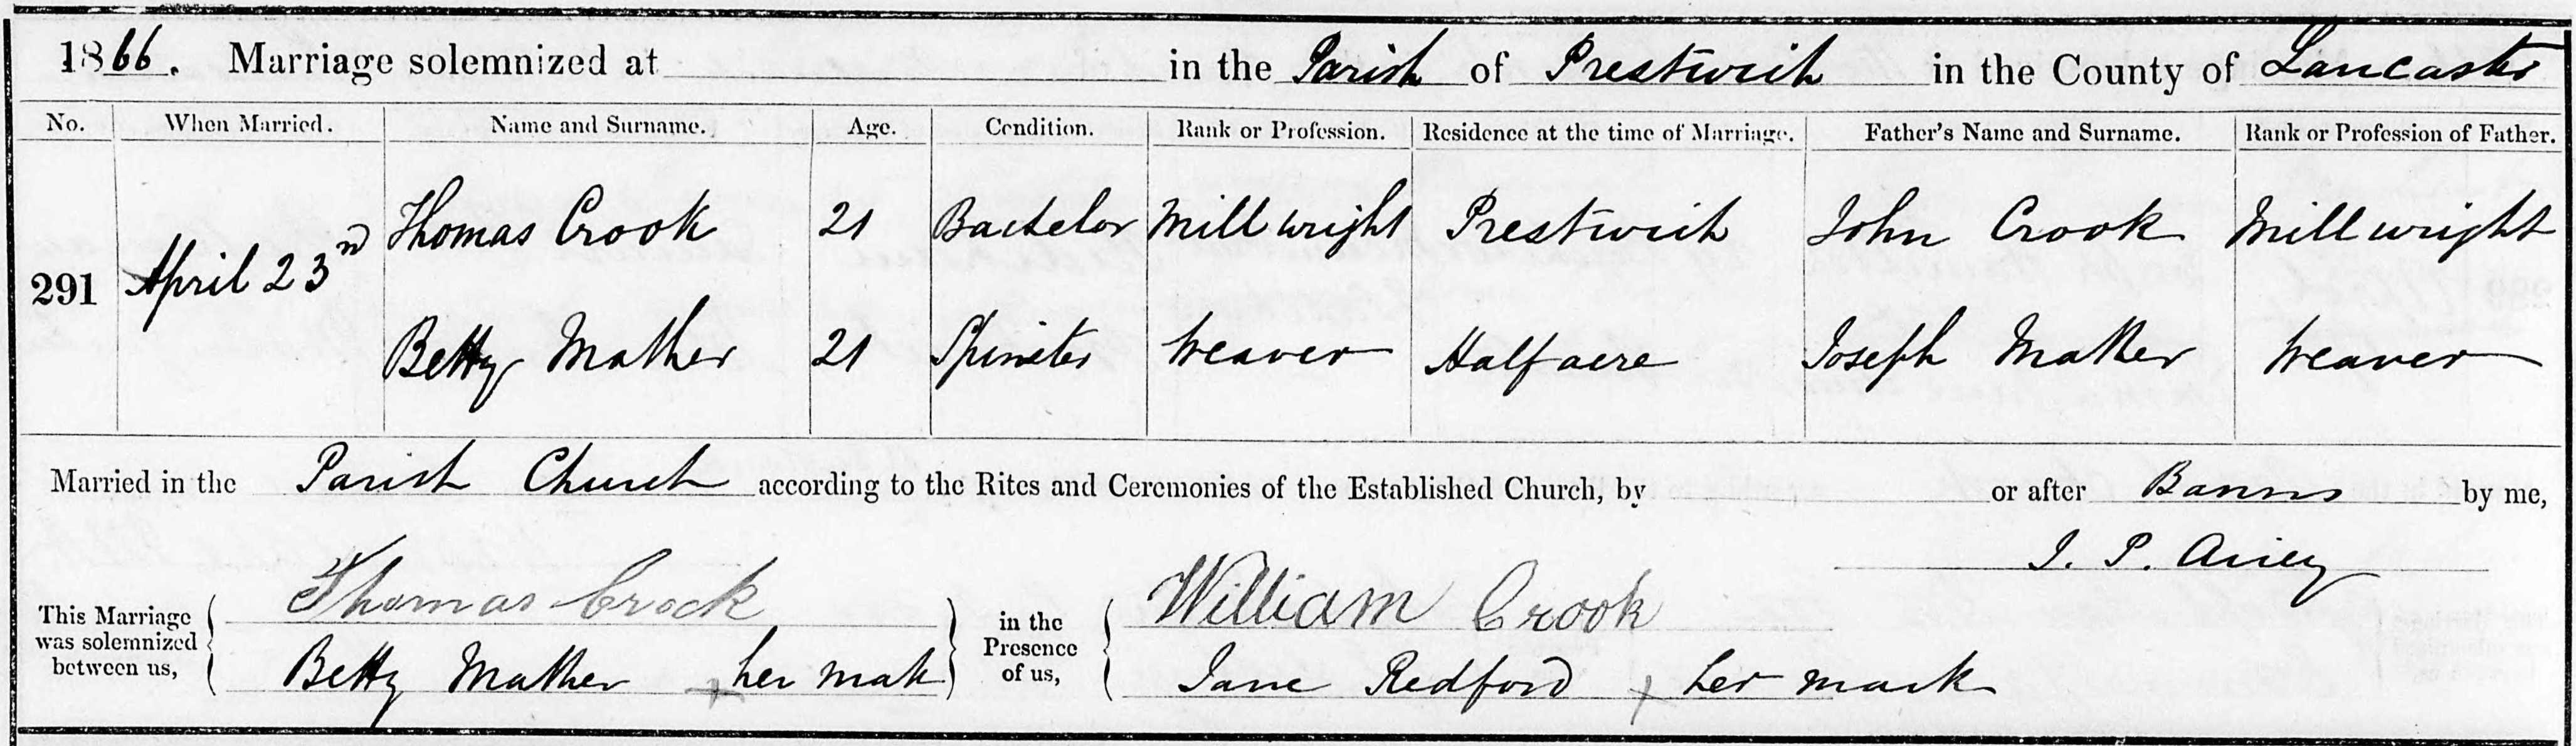 1866. Marriage solemnized at in the Parish of Prestwich in the County of Lancaster
No. When Married. Name and Surname. Age. Condition. Rank or Profession. Residence at the time of Marriage. Father's Name and Surname. Rank or Profession of Father.
Thomas Crook 21 Bachelor Millwright Prestwich John Crook Millwright
291 April 23rd
Betty Mather 21 Spinster Weaver Half acre Joseph Mather Weaver
Married in the Parish Church according to the Rites and Ceremonies of the Established Church, by or after Banns by me,
J. P. Airey
This Marriage was solemnized between us,
Thomas Crook
Betty Mather x her mark
in the Presence of us,
William Crook
Jane Redford x her mark